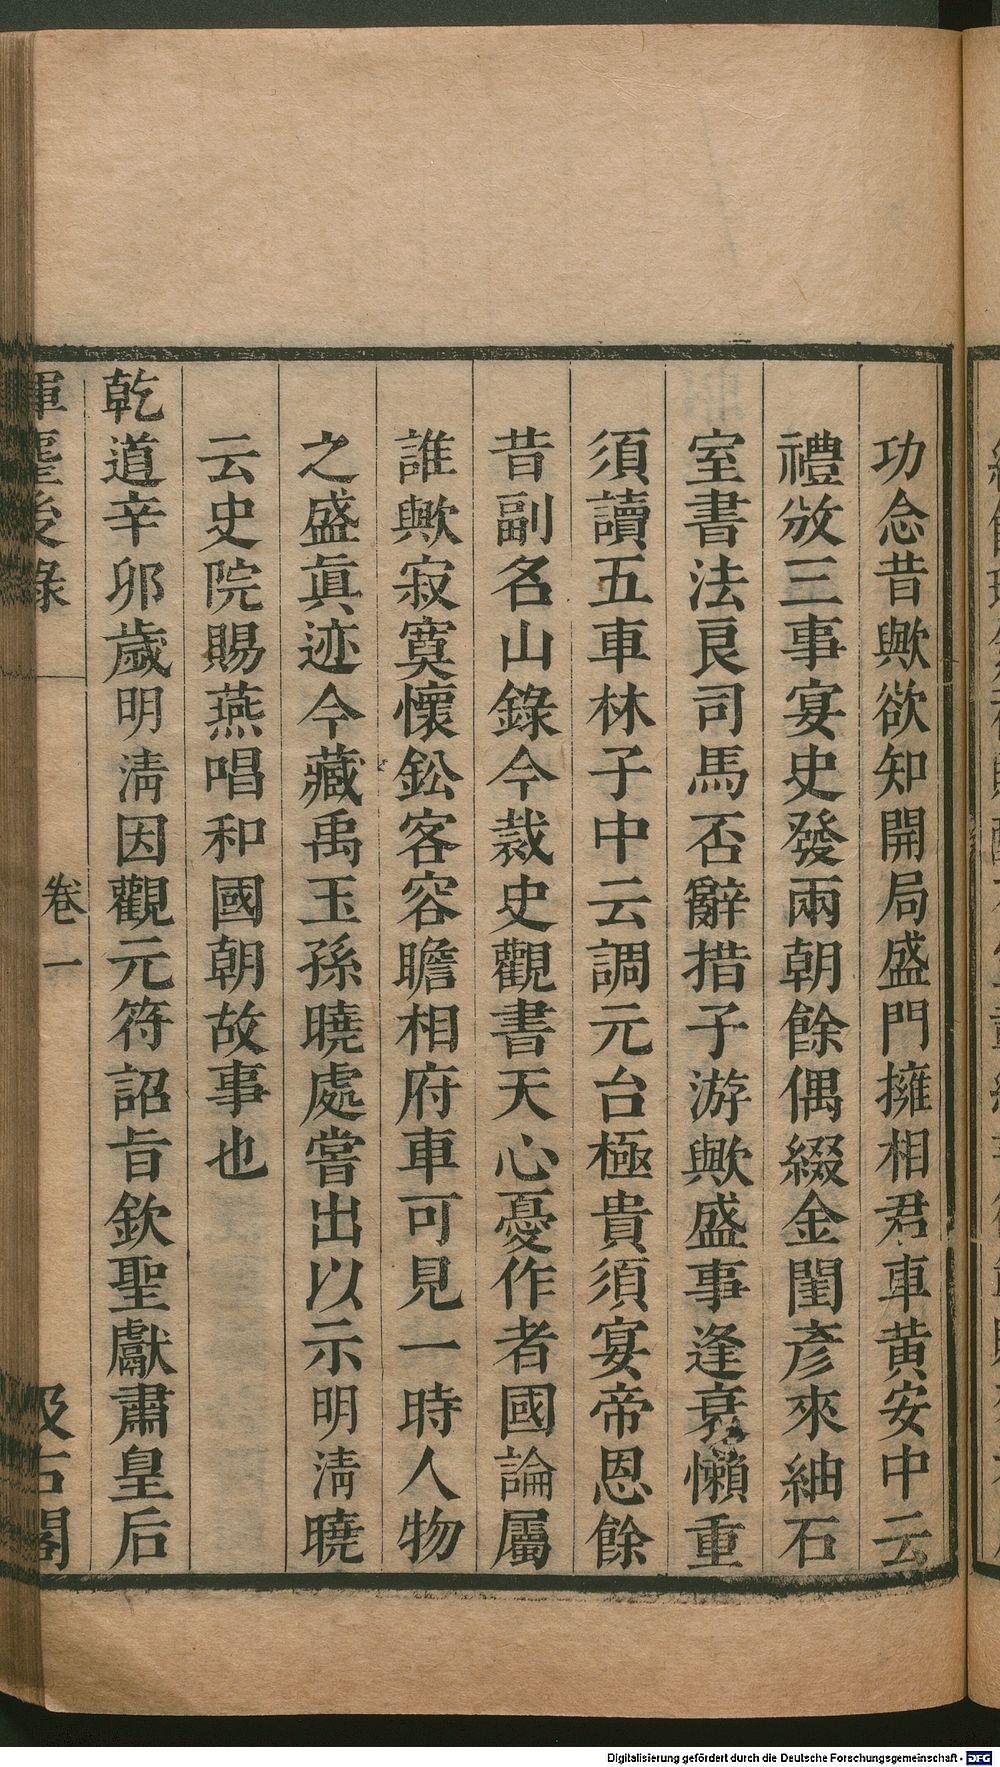 功念昔歟欲知開局盛門擁相君車黄安中云
禮放三事宴史發兩朝餘偶綴金閨彦來紬石
室書法良司馬否辭措子游歟盛事逢衰懶重
須讀五車林子中云調元台極貴須宴帝恩餘
昔副名山錄今裁史觀書天心憂作者國論屬
誰歟寂寞懷鈆客容瞻相府車可見一時人物
之盛眞迹今藏禹玉孫曉處嘗出以示明淸曉
云史院賜燕唱和國朝故事也
乾道辛卯歲明淸因觀元符詔旨欽聖獻肅皇后
揮麈後錄 卷一 汲古閣
Digitalisierung gefördert durch die Deutsche Forschungsgemeinschaft - DFG